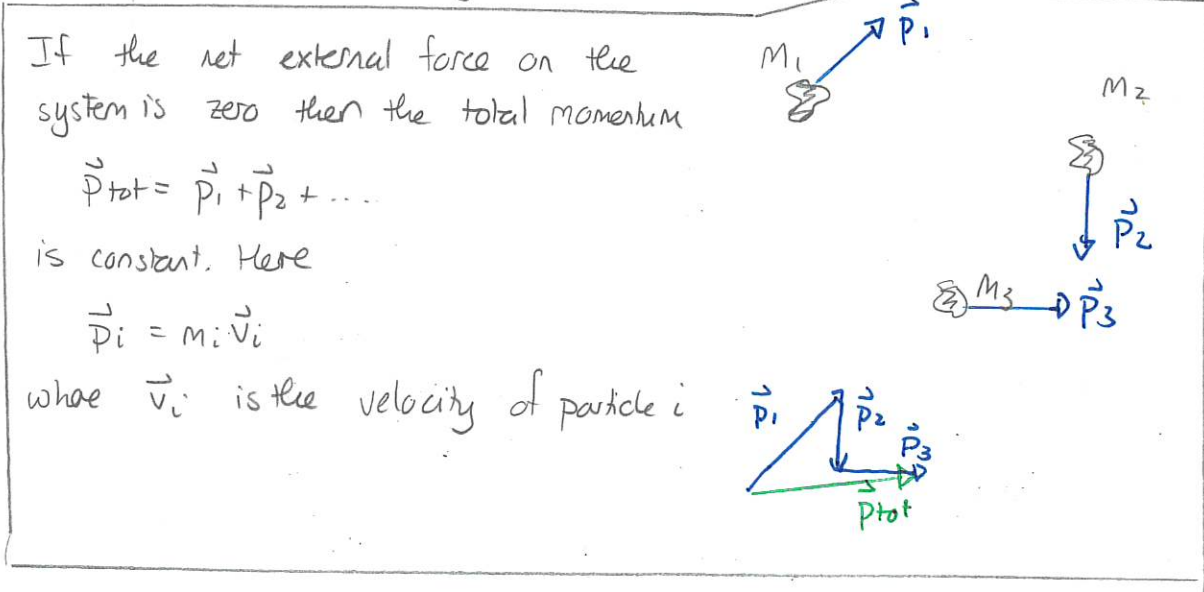 If the net external force on the
system is zero then the total momentum
p⃗tot = p⃗₁ + p⃗₂ + ....
is constant. Here
p⃗i = mi v⃗i
whoe v⃗i is the velocity of particle i
M₁
p⃗₁
M₂
p⃗₂
M₃
p⃗₃
p⃗₁
p⃗₂
p⃗₃
p⃗tot